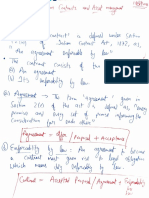 Contracts and Asset management
contract" is defined under section
of Indian Contract Act, 1872, as,
" An agreement enforceable by law"
The contract consists of two
(a) An agreement
(ii) Its enforceability by law.
(a) Agreement → The term is given in
Section 2(e) of the act is defined as, "Every promise
and every set of promises forming the
consideration for each other".
Agreement = Offer / Proposal + Acceptance
Enforceability by law :- An agreement to become
a Contract must give rise to legal obligation
which means duly enforceable by law.
Contract = Accepted Proposal / Agreement + Enforceability